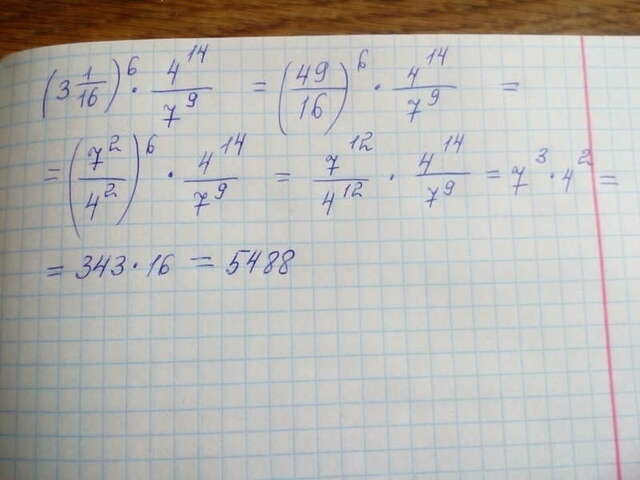 (3 1/16)^6 · 4^14/7^9 = (49/16)^6 · 4^14/7^9 =
= (7^2/4^2)^6 · 4^14/7^9 = 7^12/4^12 · 4^14/7^9 = 7^3 · 4^2 =
= 343 · 16 = 5488